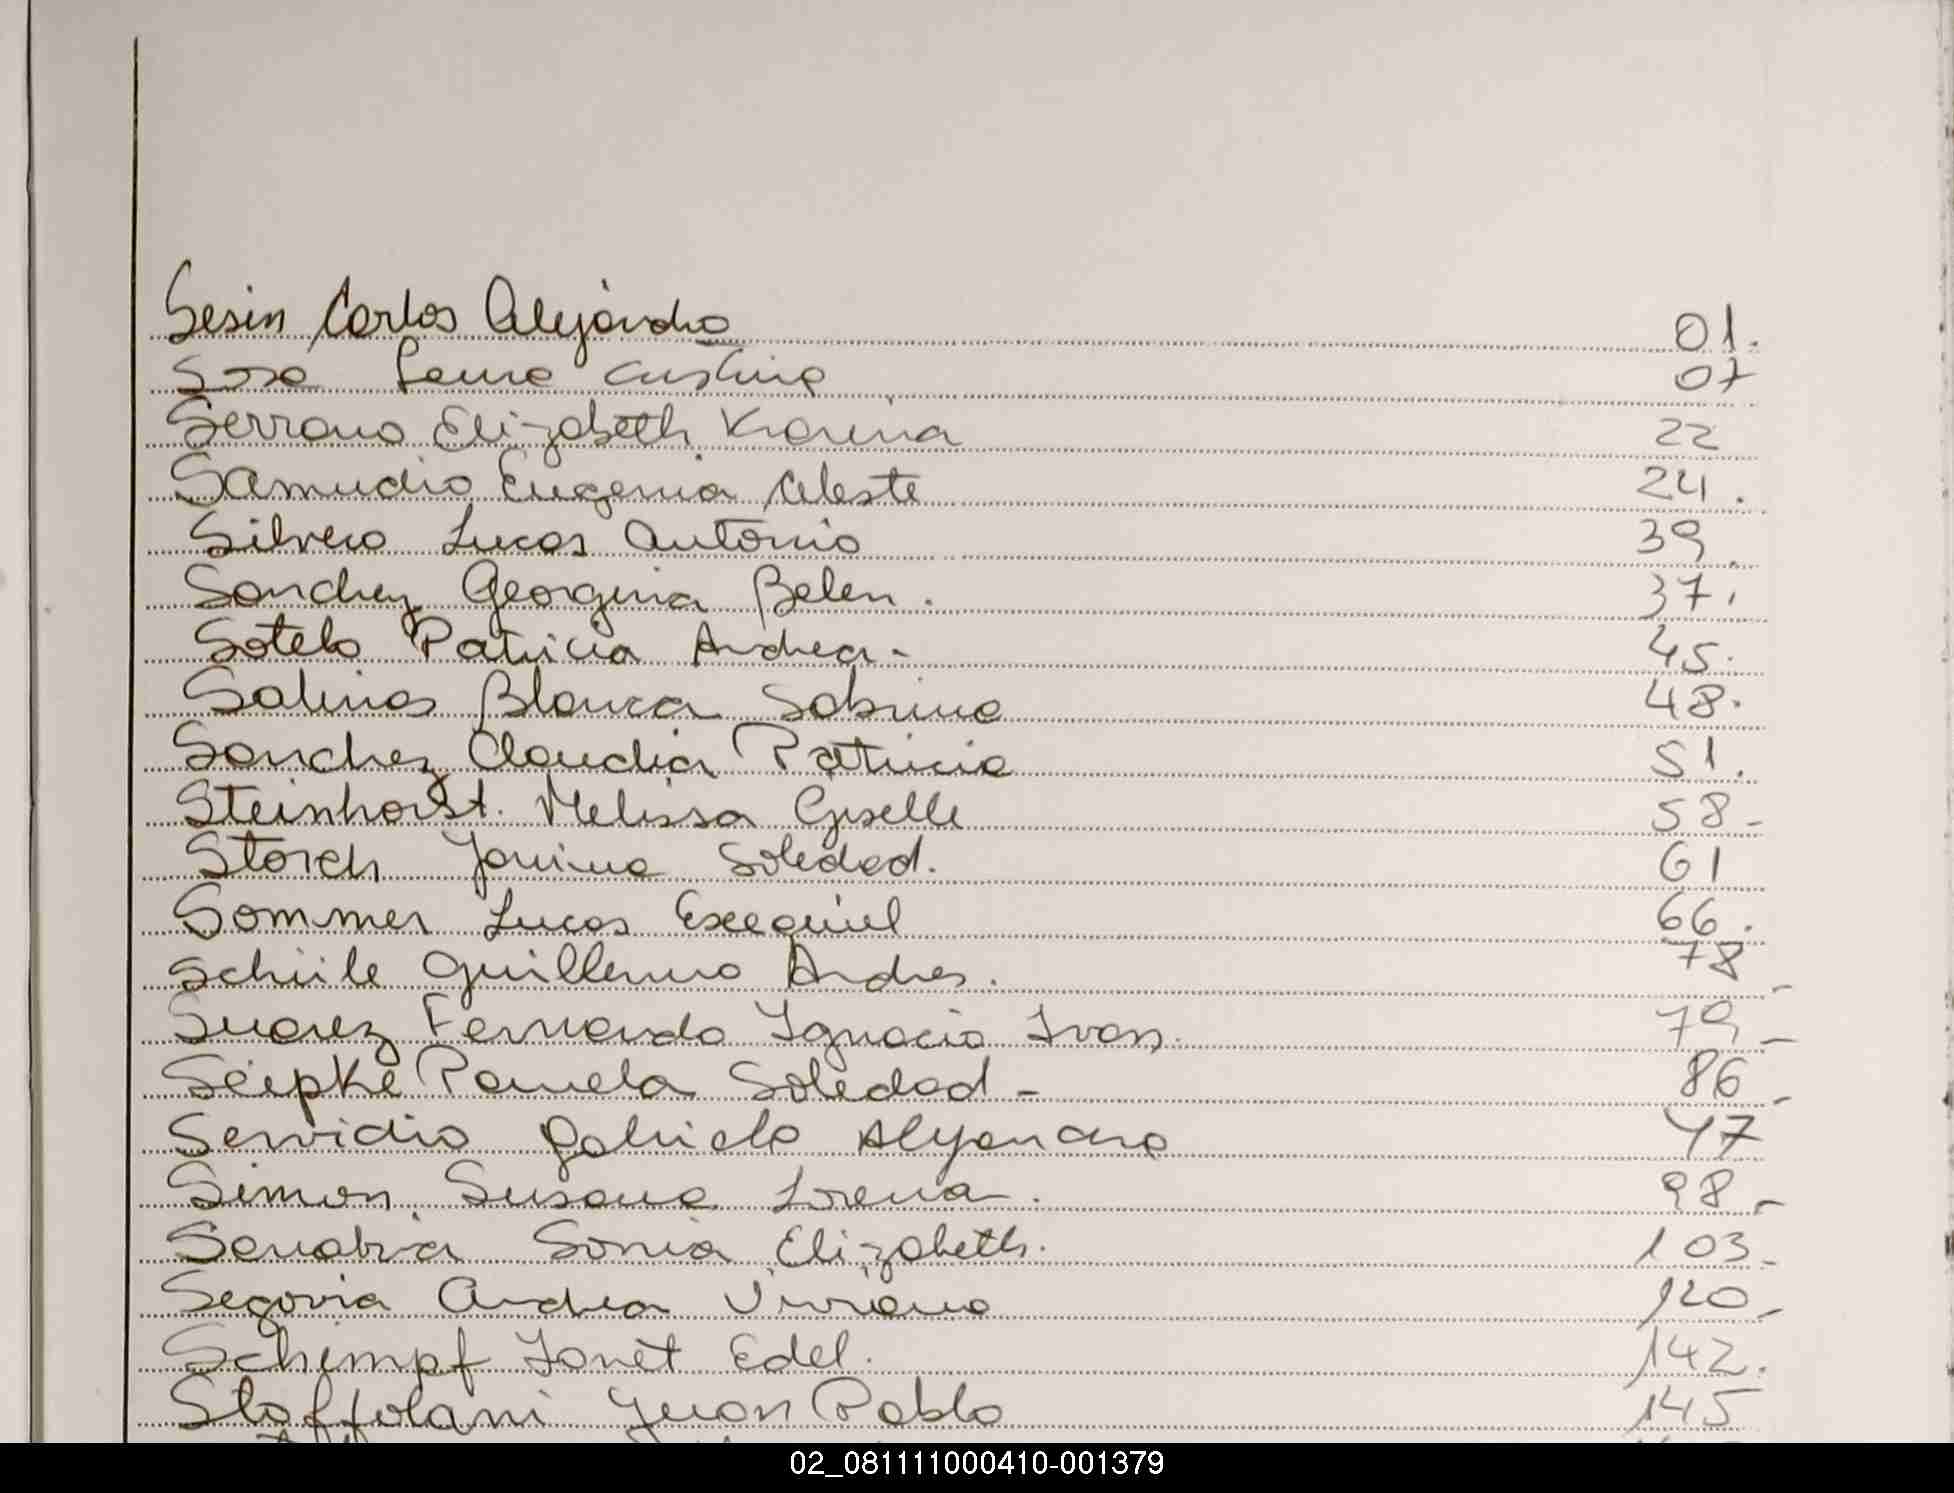 Sesin Carlos Alejandro 01.
Sosa Laura Cristina 07
Serrano Elizabeth Karina 22
Samudio Eugenia Celeste 24.
Silvero Lucas Antonio 39.
Sanchez Georgina Belen. 37.
Sotelo Patricia Andrea- 45.
Salinas Blanca Sabrina 48.
Sanchez Claudia Patricia 51.
Steinhorst. Melissa Giselle 58-
Storch Janina Soledad. 61
Sommer Lucas Exequiel 66.
Schüle Guillermo Andres. 78-
Suarez Fernando Ignacio Ivan. 79-
Seipke Pamela Soledad- 86-
Servidio Gabriela Alejandra 47
Simon Susana Lorena. 98-
Sanabria Sonia Elizabeth. 103-
Segovia Andrea Viviana 120-
Schimpf Janet Edel. 142.
Staffolani Juan Pablo 145
02_081111000410-001379